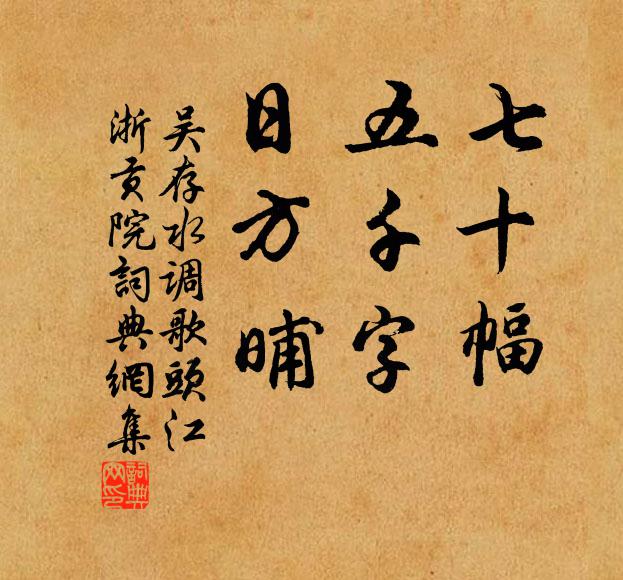 七十幅
五千字
日方晡
吴存水调歌頭江
浙贡院詞典網集
詞典網印